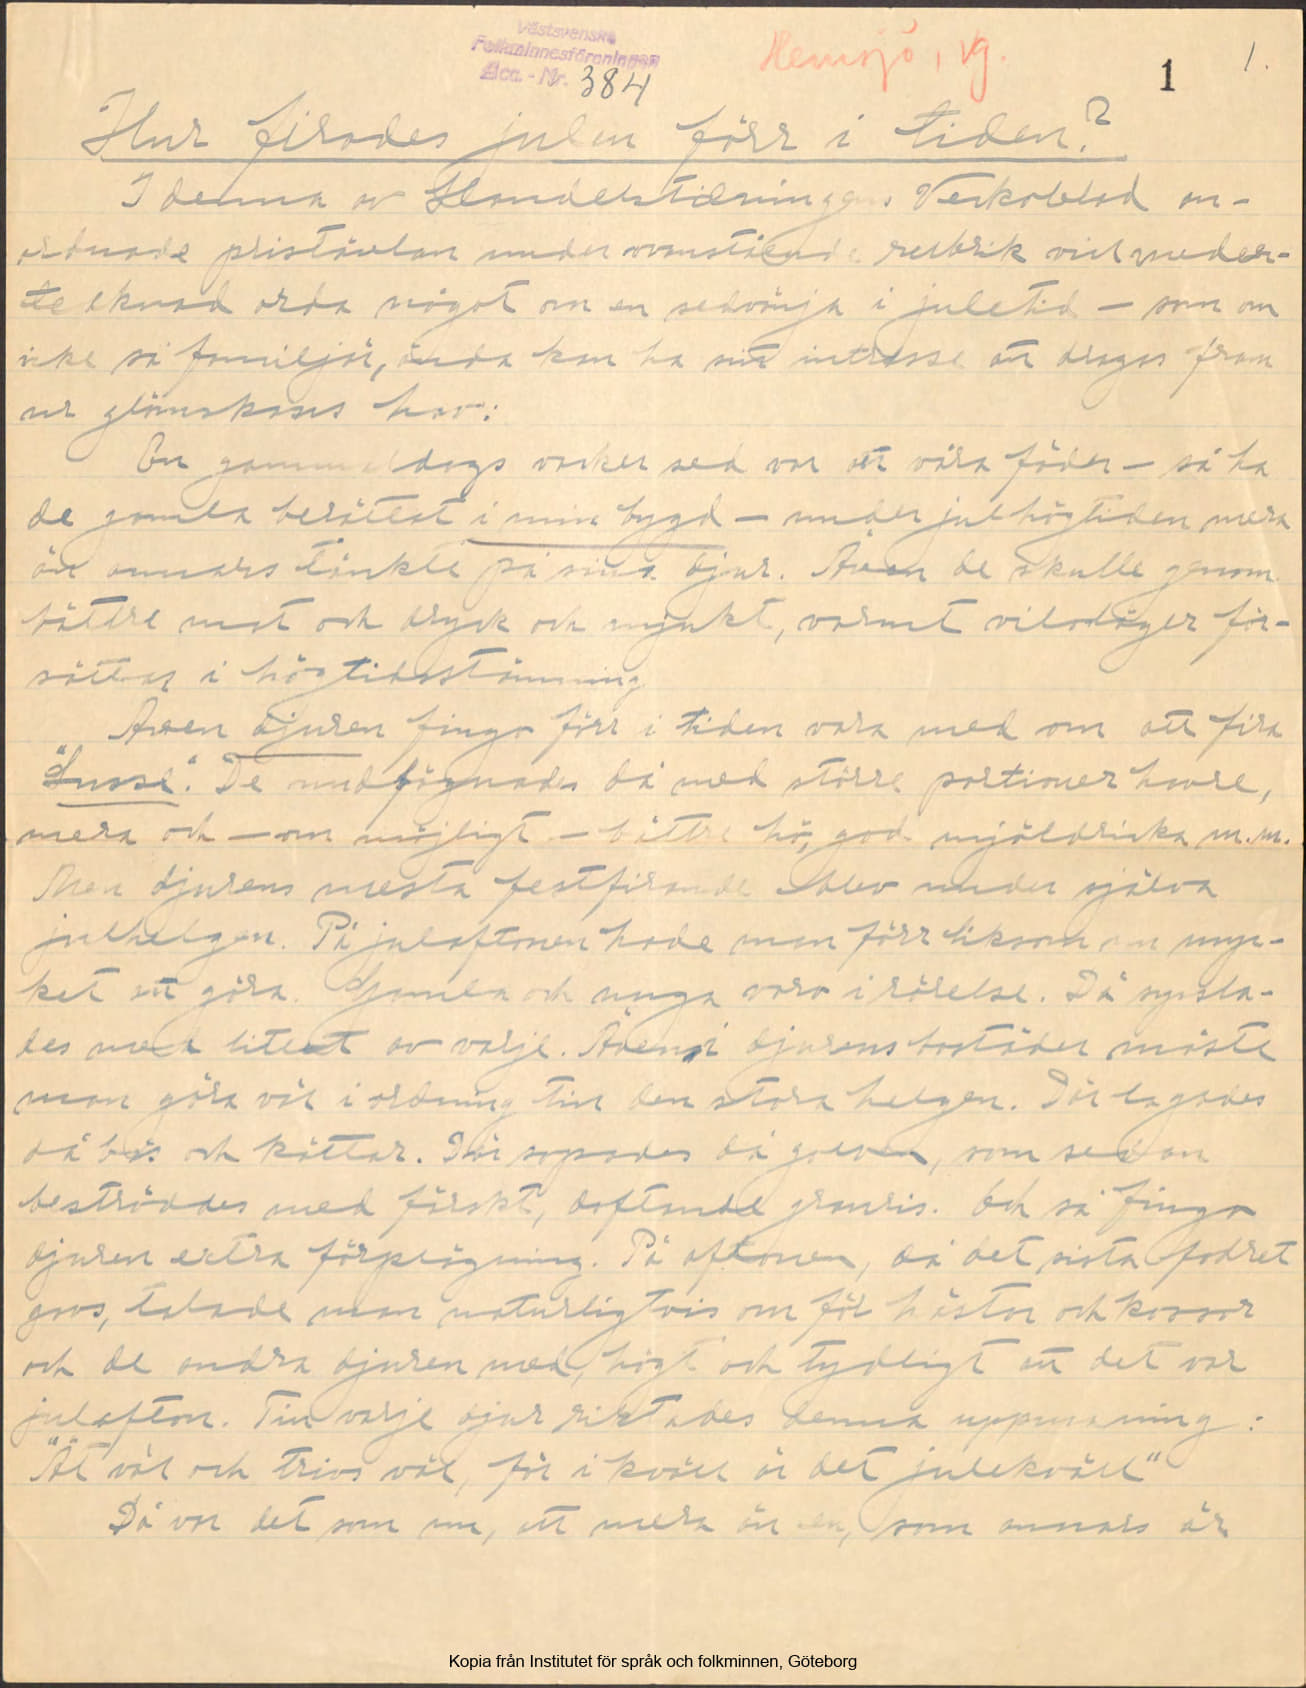 Västsvenska
Folkminnesföreningen
Acc. - Nr. 384
Hemsjö, Vg.
1
1.
Hur firades julen förr i tiden?
I denna av Handelstidningens Veckoblad an-
ordnade pristävlan under ovanstående rubrik vill underte-
teeknad orda något om en sedvänja i juletid — som om
icke så familjär, ända kan ha sitt intresse att dragas fram
ur glömskans hav:
En gammaldags vacker sed var att våra fäder — så ha
de gamla berättat i min bygd — under julhögtiden mera
än annars tänkte på sina djur. Även de skulle genom
bättre mat och dryck och mjukt, varmt viloläger för-
sättas i högtidsstämning
Även djuren fingo förr i tiden vara med om att fira
"Lusse". De undfägnades då med större portioner havre,
mera och — om möjligt — bättre hö, god mjöldricka m.m.
Men djurens mesta festfirande blev under själva
julhelgen. På julaftonen hade man förr liksom nu myc-
ket att göra. Gamla och unga voro i rörelse. Då syssla-
des med litet av varje. Även i djurens bostäder måste
man göra väl i ordning till den stora helgen. Där lagades
då bås och kättar. Där sopades då golven, som sedan
beströddes med färskt, doftande granris. Och så fingo
djuren extra förplägning. På aftonen, då det sista fodret
gavs, talade man naturligtvis om för hästar och kossor
och de andra djuren med, högt och tydligt att det var
julafton. Till varje djur riktades denna uppmaning:
"Ät väl och trivs väl, för i kväll är det julekväll"
Då var det som nu, att mera än en, som annars är
Kopia från Institutet för språk och folkminnen, Göteborg